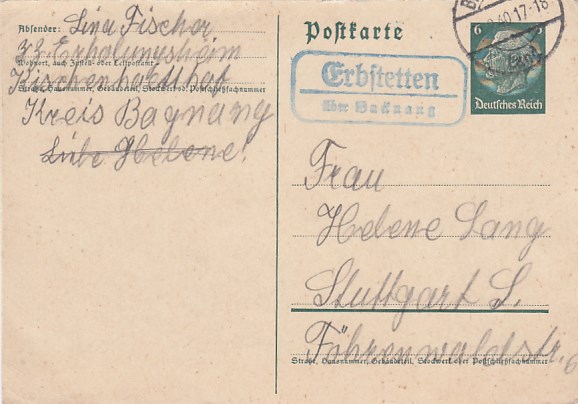 Absender: Lina Fischer
z.Z. Erholungsheim
Wohnort, auch Zustell- oder Leitpostamt
Kirschenhardthof
Straße, Hausnummer, Gebäudeteil, Stockwerk od. Postschließfachnummer
Kreis Bagnang
Liebe Helene!
Postkarte
40.17-18
6
Deutsches Reich
Erbstetten
über Backnang
Frau
Helene Lang
Stuttgart S.
Föhrenwaldstr. 6
Straße, Hausnummer, Gebäudeteil, Stockwerk oder Postschließfachnummer